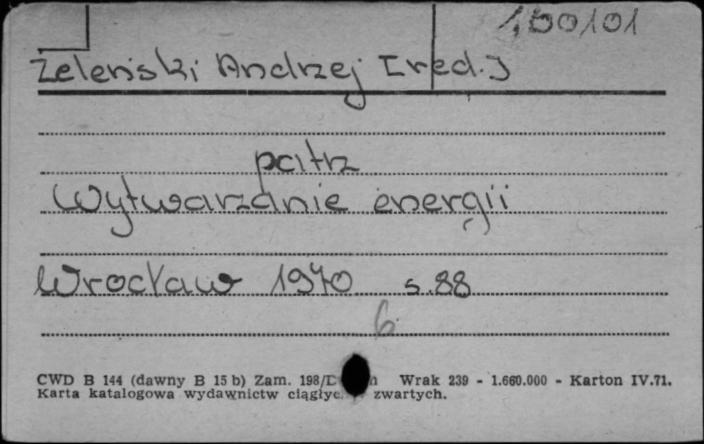 100101
Zeleński Andrzej [red.]
patrz
Wytwarzanie energii
Wrocław 1970 s.88
6
CWD B 144 (dawny B 15 b) Zam. 198/D Wrak 239 - 1.660.000 - Karton IV.71.
Karta katalogowa wydawnictw ciągłyc zwartych.